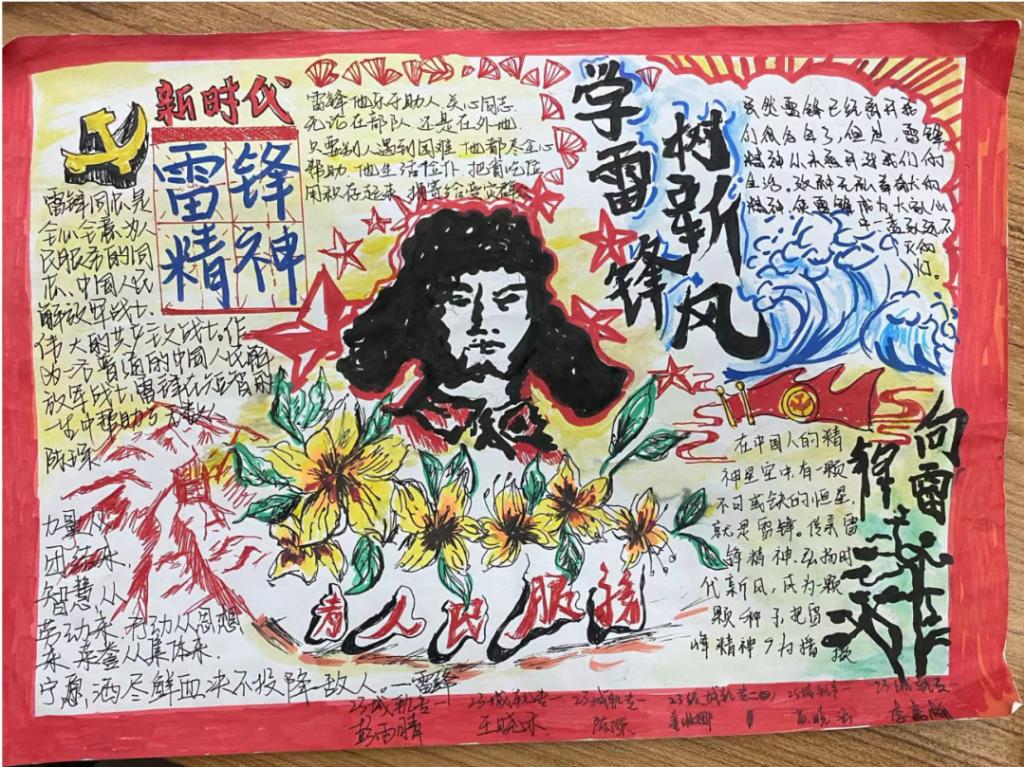 新时代
雷锋
精神
雷锋同志是
全心全意为人
民服务的同
志、中国人民
解放军战士.
伟大的共产主义战士.作
为一名普通的中国人民解
放军战士,雷锋在短暂的
一生中帮助了无数人
力量从
团结来,
智慧从
劳动来,行动从思想
来,荣誉从集体来.
宁愿洒尽鲜血,决不投降敌人。—雷锋
雷锋他乐于助人,关心同志.
无论在部队,还是在外地,
只要别人遇到困难,他都尽全心
帮助.他生活俭朴,把省吃俭
用积存起来,捐寄给受灾群众
学雷锋
树新风
虽然雷锋已经离开我
们很久了,但是,雷锋
精神从未离开我们的
生活,
精神,使雷锋成为大家心
中一盏永远不
灭的
灯。
向雷
锋
在中国人的精
神星空中,有一颗
不可或缺的恒星,
就是雷锋。传承雷
锋精神,弘扬时
代新风,成为一颗
颗种子把雷
峰精神广为播
为人民服务
23城轨壹一
彭雨晴
23城轨壹一
王晓
23城轨壹一
23级城轨壹
23城轨壹一
23城轨壹一